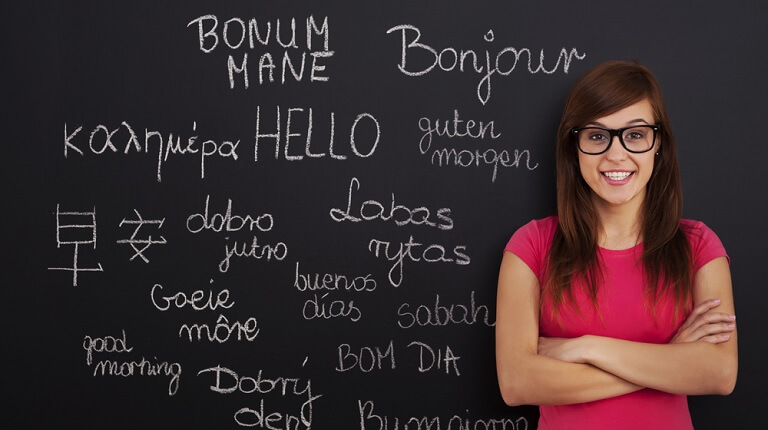 BONUM
MANE
Bonjour
καλημέρα
HELLO
guten
morgen
早安
dobro
jutro
Labas
rytas
buenos
días
sabah
Goeie
môre
good
morning
BOM DIA
Dobrý
den